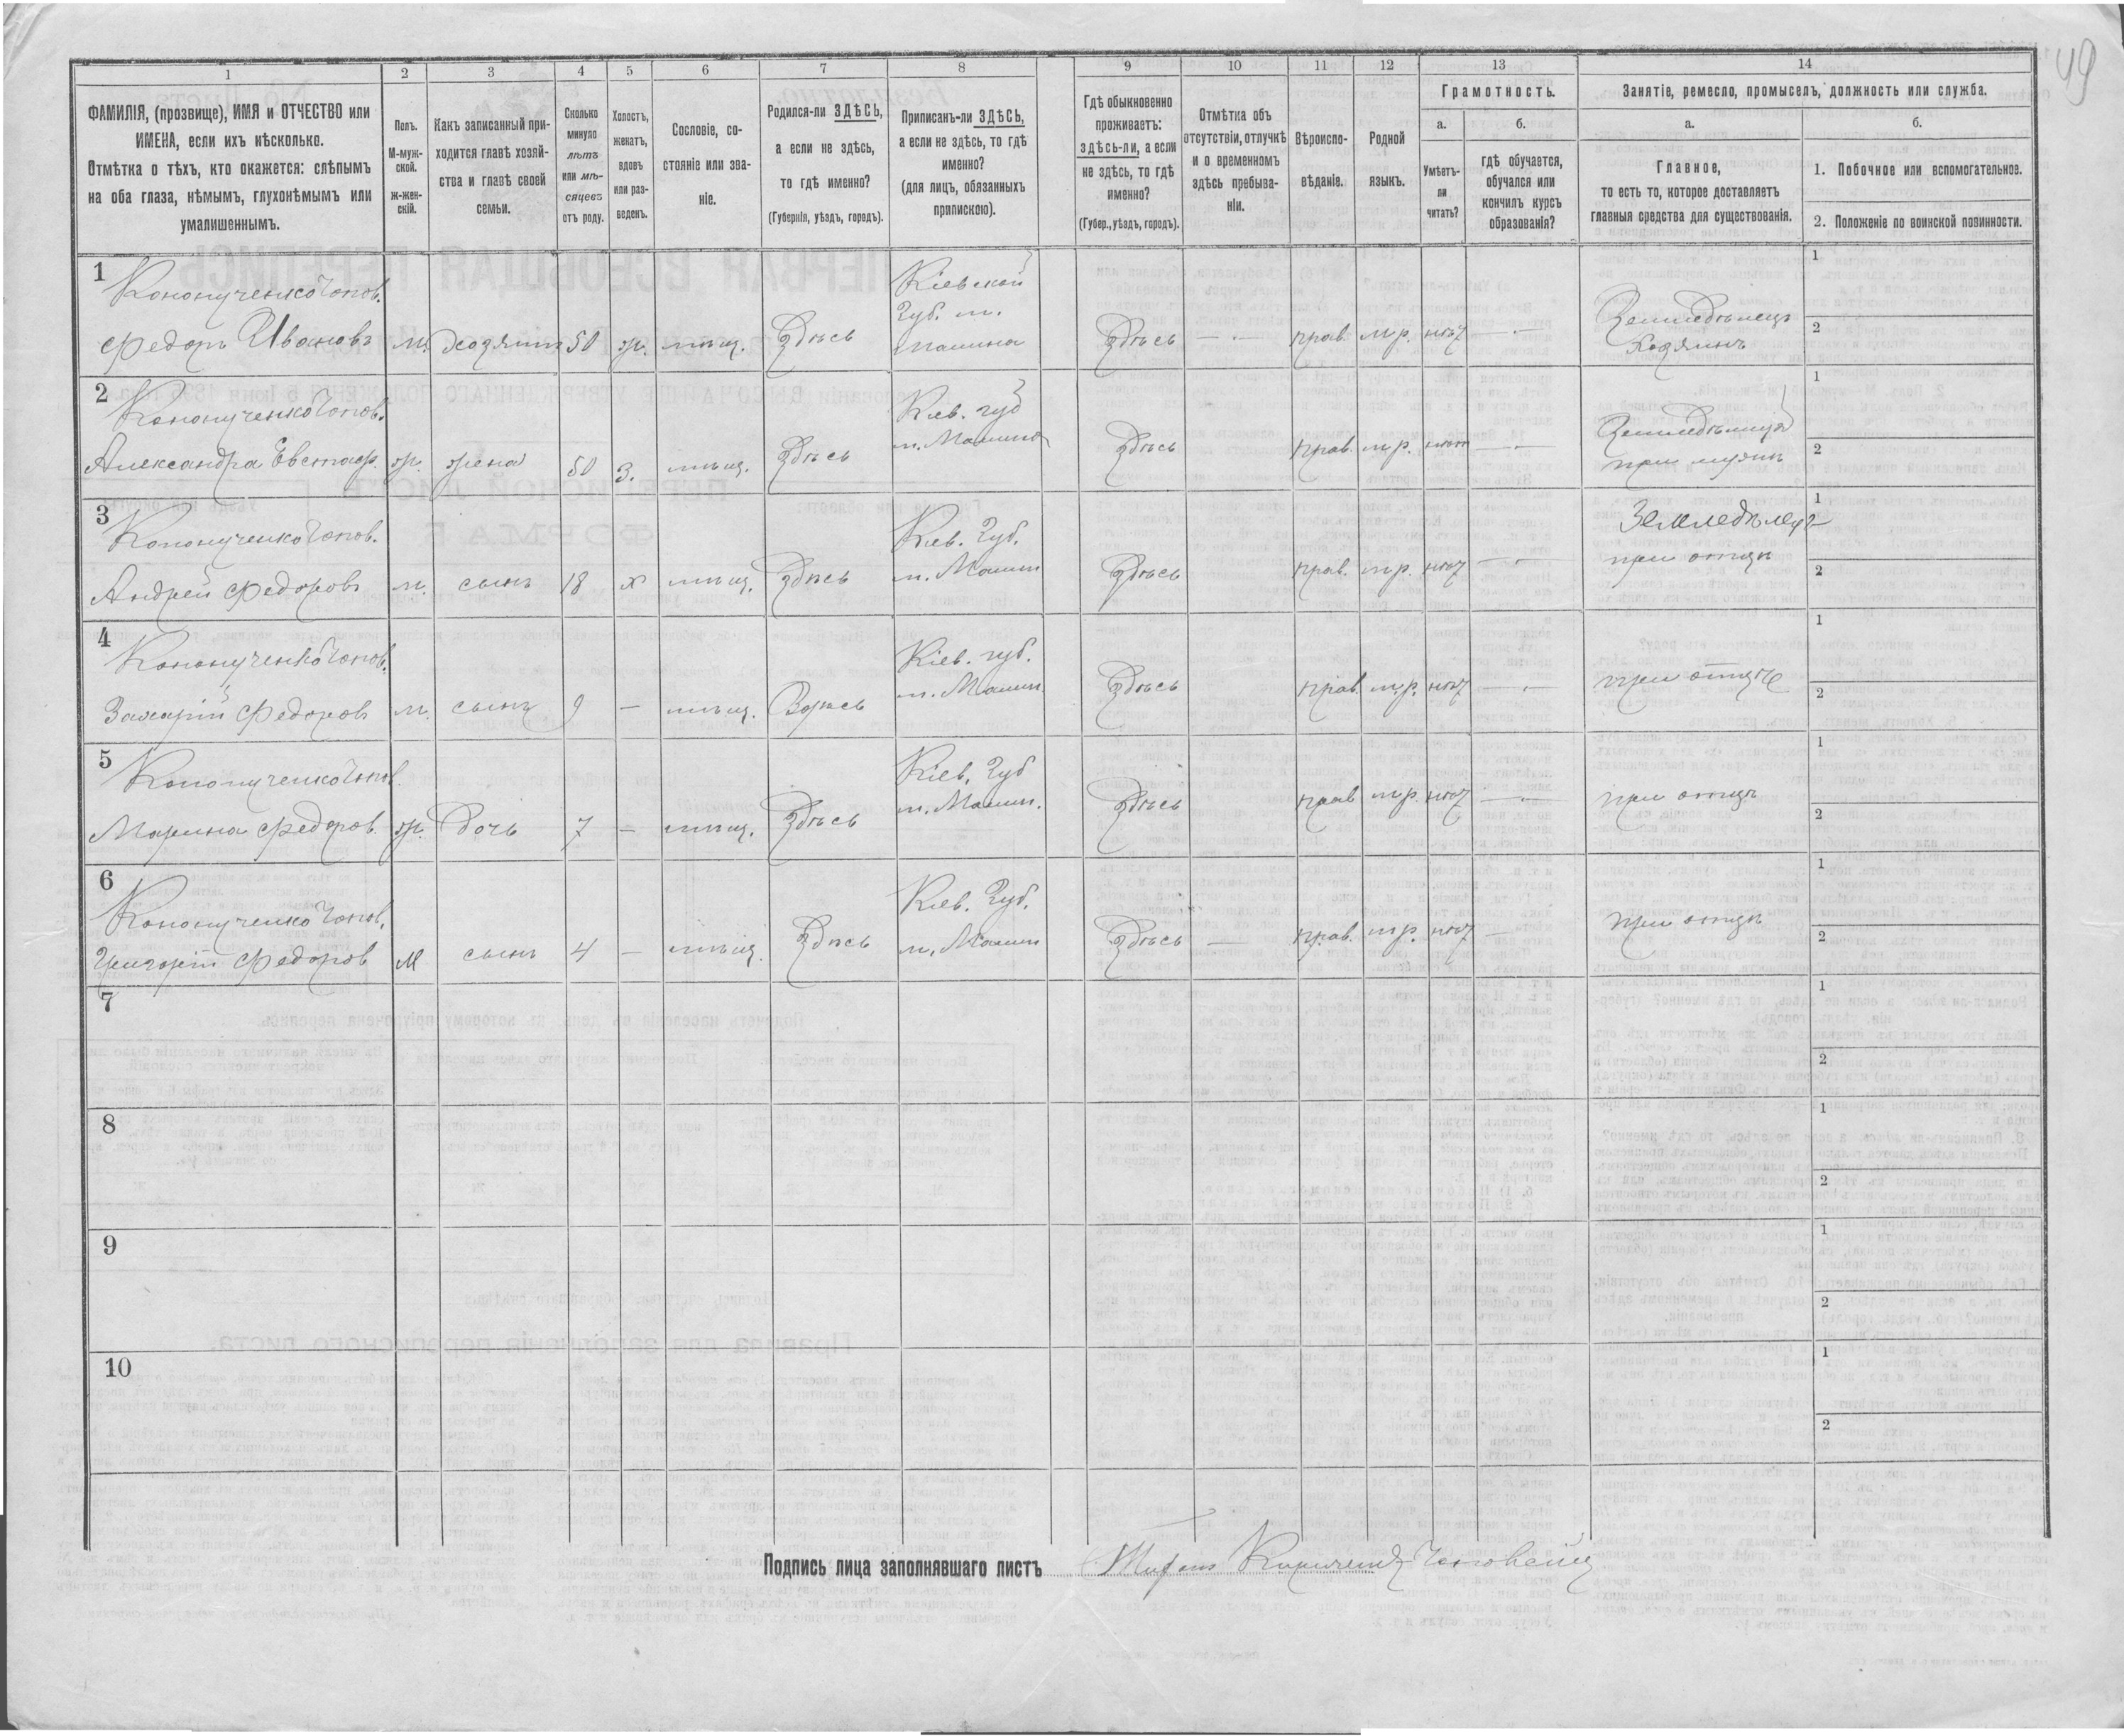 49
1 2 3 4 5 6 7 8 9 10 11 12 13 14
ФАМИЛІЯ, (прозвище), ИМЯ и ОТЧЕСТВО или
ИМЕНА, если ихъ нѣсколько.
Отмѣтка о тѣхъ, кто окажется: слѣпымъ
на оба глаза, нѣмымъ, глухонѣмымъ или
умалишеннымъ.
Полъ.
М-муж-
ской.
ж-жен-
скій.
Какъ записанный при-
ходится главѣ хозяй-
ства и главѣ своей
семьи.
Сколько
минуло
лѣтъ
или мѣ-
сяцевъ
отъ роду.
Холостъ,
женатъ,
вдовъ
или раз-
веденъ.
Сословіе, со-
стояніе или зва-
ніе.
Родился-ли ЗДѢСЬ,
а если не здѣсь,
то гдѣ именно?
(Губернія, уѣздъ, городъ).
Приписанъ-ли ЗДѢСЬ,
а если не здѣсь, то гдѣ
именно?
(для лицъ, обязанныхъ
припискою).
Гдѣ обыкновенно
проживаетъ:
здѣсь-ли, а если
не здѣсь, то гдѣ
именно?
(Губер., уѣздъ, городъ).
Отмѣтка объ
отсутствіи, отлучкѣ
и о временномъ
здѣсь пребыва-
ніи.
Вѣроиспо-
вѣданіе.
Родной
языкъ.
Грамотность.
а.
Умѣетъ-
ли
читать?
б.
гдѣ обучается,
обучался или
кончилъ курсъ
образованія?
Занятіе, ремесло, промыселъ, должность или служба.
а.
Главное,
то есть то, которое доставляетъ
главныя средства для существованія.
б.
1. Побочное или вспомогательное.
2. Положеніе по воинской повинности.
1
Кононученко Чопов.
Федоръ Ивановъ м. Хозяинъ 50 ж. мѣщ. Здѣсь
Кіевской
Губ. м.
Малина
Здѣсь — прав. м.р. нѣт —
Земледѣлецъ
Хозяинъ
1
2
2
Кононученко Чопов.
Александра Евстаф. ж. жена 50 з. мѣщ. Здѣсь
Кіев. губ
м. Малина
Здѣсь прав. м.р. нѣт —
Земледѣлица
при мужѣ
1
2
3
Кононученко Чопов.
Андрей Федоровъ м. сынъ 18 х мѣщ. Здѣсь
Кіев. Губ.
м. Малин
Здѣсь прав. м.р. нѣт —
Земледѣлец
при отцѣ
1
2
4
Кононученко Чопов.
Захарій Федоровъ м. сынъ 9 — мѣщ. Здѣсь
Кіев. губ.
м. Малин.
Здѣсь прав. м.р. нѣт —
при отцѣ
1
2
5
Кононученко Чопов
Марина Федоров. ж. дочь 7 — мѣщ. Здѣсь
Кіев. Губ
м. Малин.
Здѣсь прав м.р. нѣт —
при отцѣ
1
2
6
Кононученко Чопов.
Григорій Федоров м сынъ 4 — мѣщ. Здѣсь
Кіев. Губ.
м. Малин
Здѣсь — прав. м.р. нѣт —
при отцѣ
1
2
7
1
2
8
1
2
9
1
2
10
1
2
Подпись лица заполнявшаго листъ